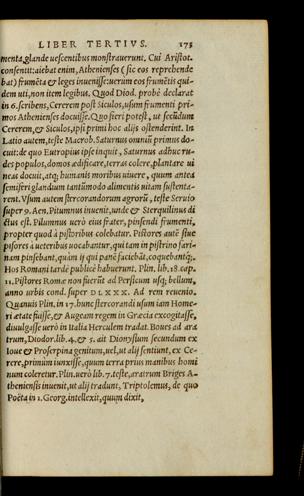 LIBER TERTIVS. 175
menta, glande uescentibus monstrauerunt. Cui Aristot.
consentit: aiebat enim, Athenienses (sic eos reprehende
bat) frumẽta & leges inuenisse: uerum eos frumẽtis qui-
dem uti, non item legibus. Quod Diod. probè declarat
in 6. scribens, Cererem post Siculos, usum frumenti pri-
mos Athenienses docuisse. Quo fieri potest, ut secũdum
Cererem, & Siculos, ipsi primi hoc alijs ostenderint. In
Latio autem, teste Macrob. Saturnus omniũ primus do-
cuit: de quo Eutropius ipse inquit, Saturnus adhuc ru-
des populos, domos ædificare, terras colere, plantare ui
neas docuit, atq; humanis moribus uiuere, quum antea
semiferi glandium tantũmodo alimentis uitam sustenta-
rent. Vsum autem stercorandorum agrorũ, teste Seruio
super 9. Aen. Pitumnus inuenit, unde & Sterquilinus di
ctus est. Pilumnus uerò eius frater, pinsendi frumenti,
propter quod à pistoribus colebatur. Pistores autẽ siue
pisores à ueteribus uocabantur, qui tam in pistrino fari-
nam pinsebant, quàm ij qui panẽ faciebãt, coquebantq́;.
Hos Romani tardè publicè habuerunt. Plin. lib. 18. cap.
11. Pistores Romæ non fuerũt ad Persicum usq; bellum,
anno urbis cond. super DLXXX. Ad rem reuenio.
Quanuis Plin. in 17. hunc stercorandi usum iam Home-
ri ætate fuisse, & Augeam regem in Græcia excogitasse,
diuulgasse uerò in Italia Herculem tradat. Boues ad ara
trum, Diodor. lib. 4. & 5. ait Dionysium secundum ex
Ioue & Proserpina genitum, uel, ut alij sentiunt, ex Ce-
rere, primùm iunxisse, quum terra prius manibus homi
num coleretur. Plin. uerò lib. 7. teste, aratrum Briges A-
theniensis inuenit, ut alij tradunt, Triptolemus, de quo
Poëta in 1. Georg. intellexit, quum dixit,